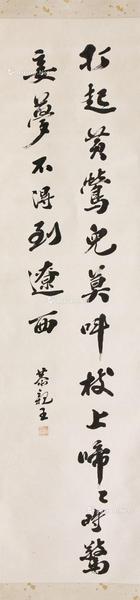 打起黃鶯兒莫叫枝上啼〻時驚
妾夢不得到遼西
恭親王